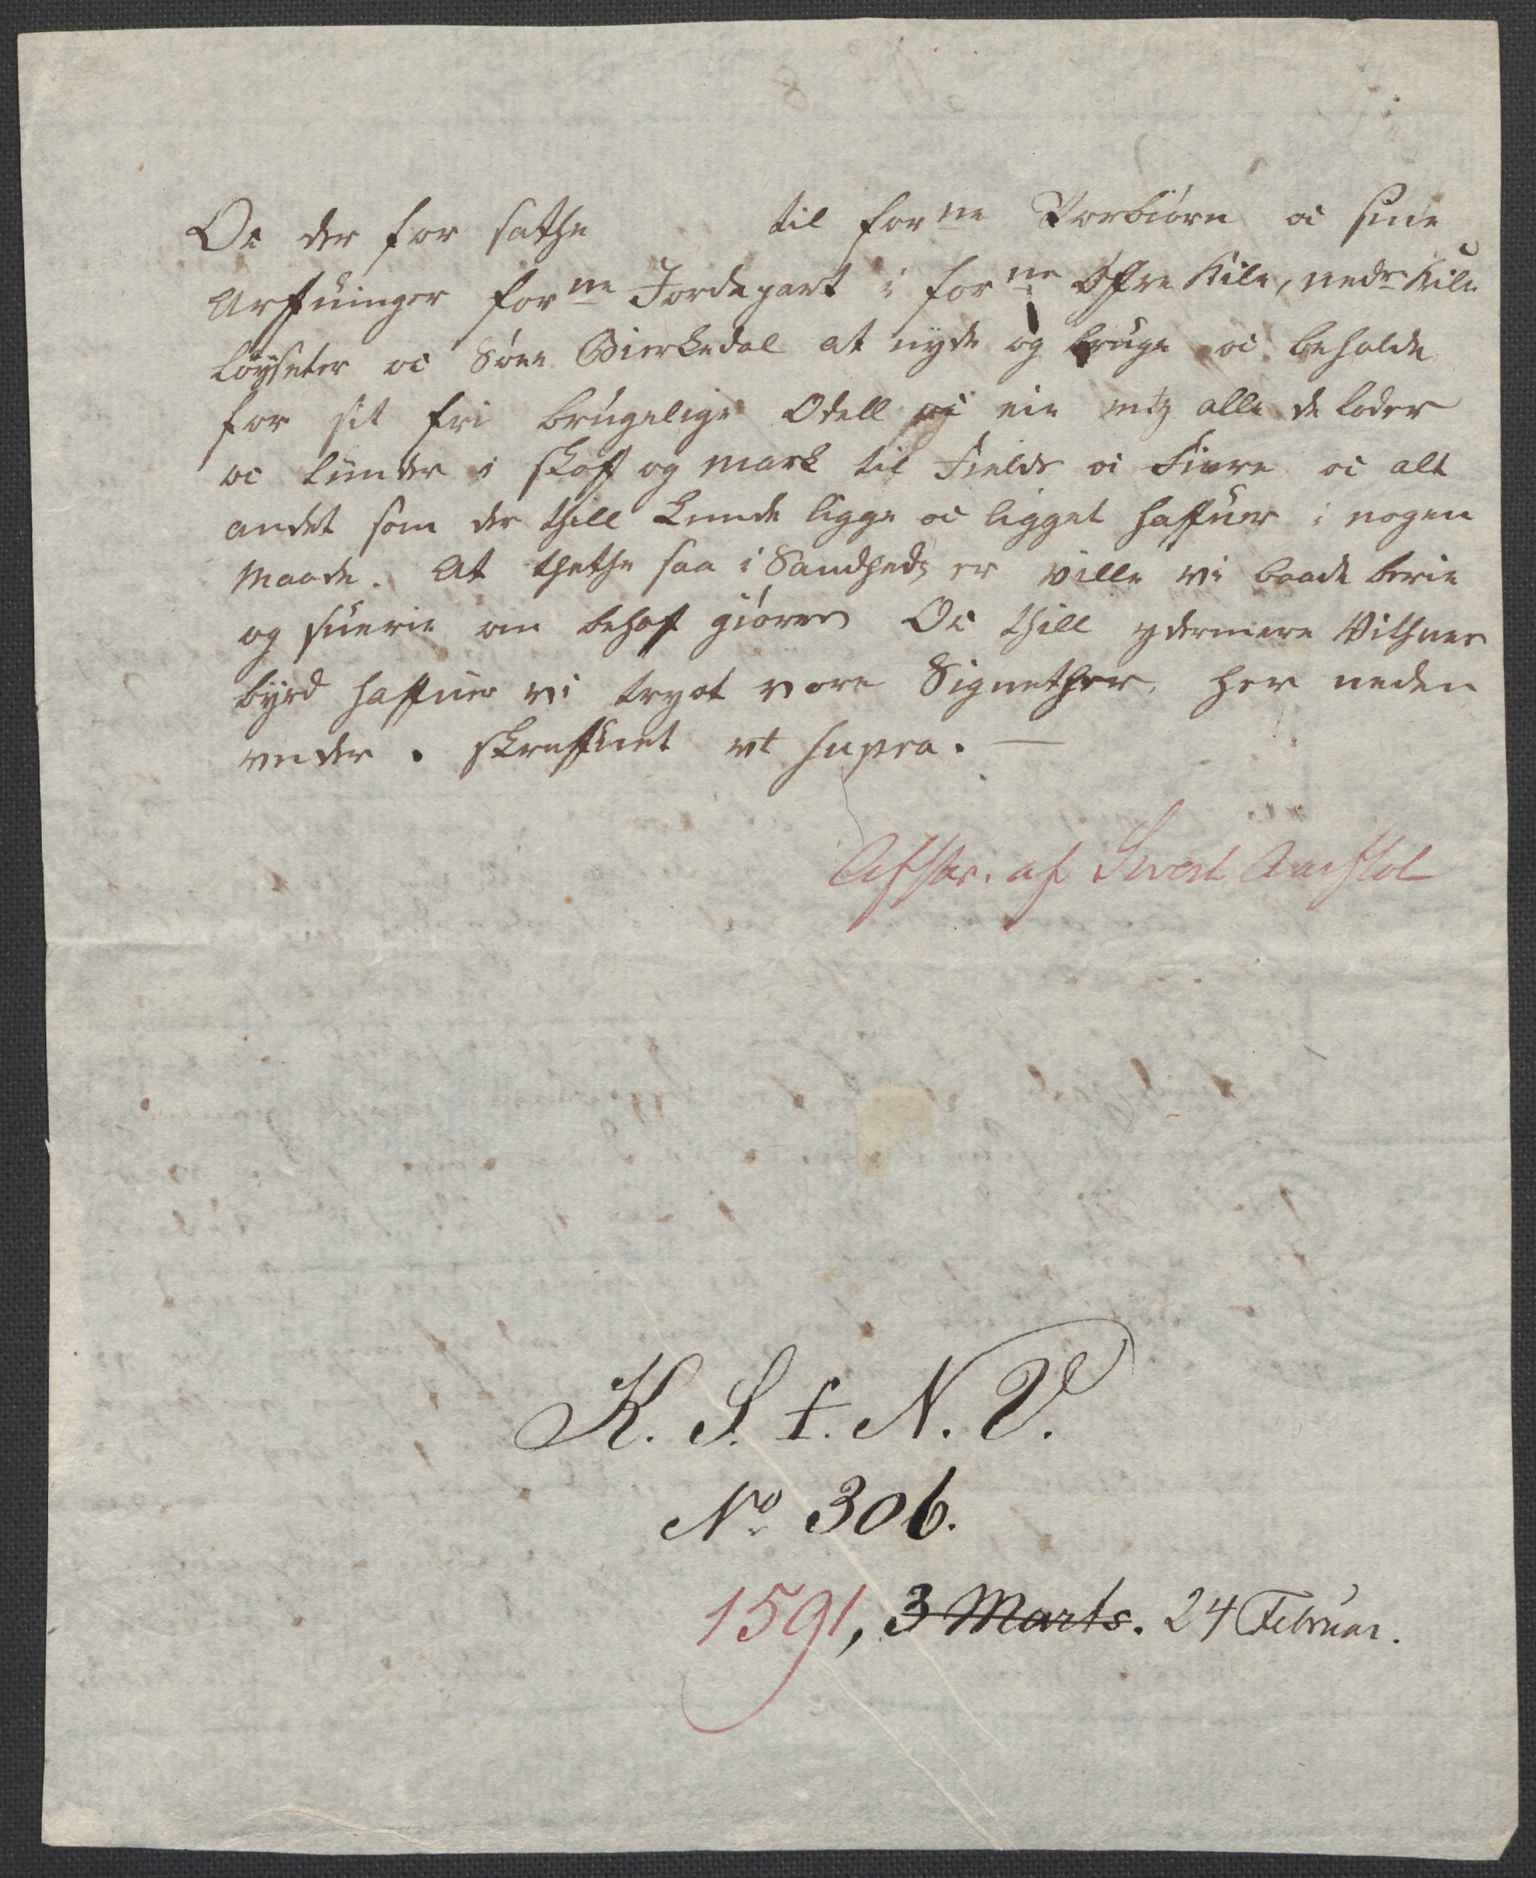 Oc der for sathe til forne Torbiörn oc sine
Arffuinger forne Jordepart i forne Öffre Kile, nedr Kile
Löyseter oc Söre Bierkedal at nyde og bruge oc beholde
for sit fri brugelige Odell oc eie mz alle de loder
oc lunder i skoff og mark til Fields oc Fiere oc alt
andet som der thill kunde ligge oc ligget haffuer i nogen
Maade. At thethe saa i Sandhed er ville vi baade berie
og suerie om behof giöres Oc thill ydermere Vithnes
byrd haffuer vi tryct vore Signether her neden
vnder. skreffuet vt supra. —
Afskr. af Sivert Aarflot
K. S. f. N. V.
No 306.
1591, 3 Marts. 24 Februar.